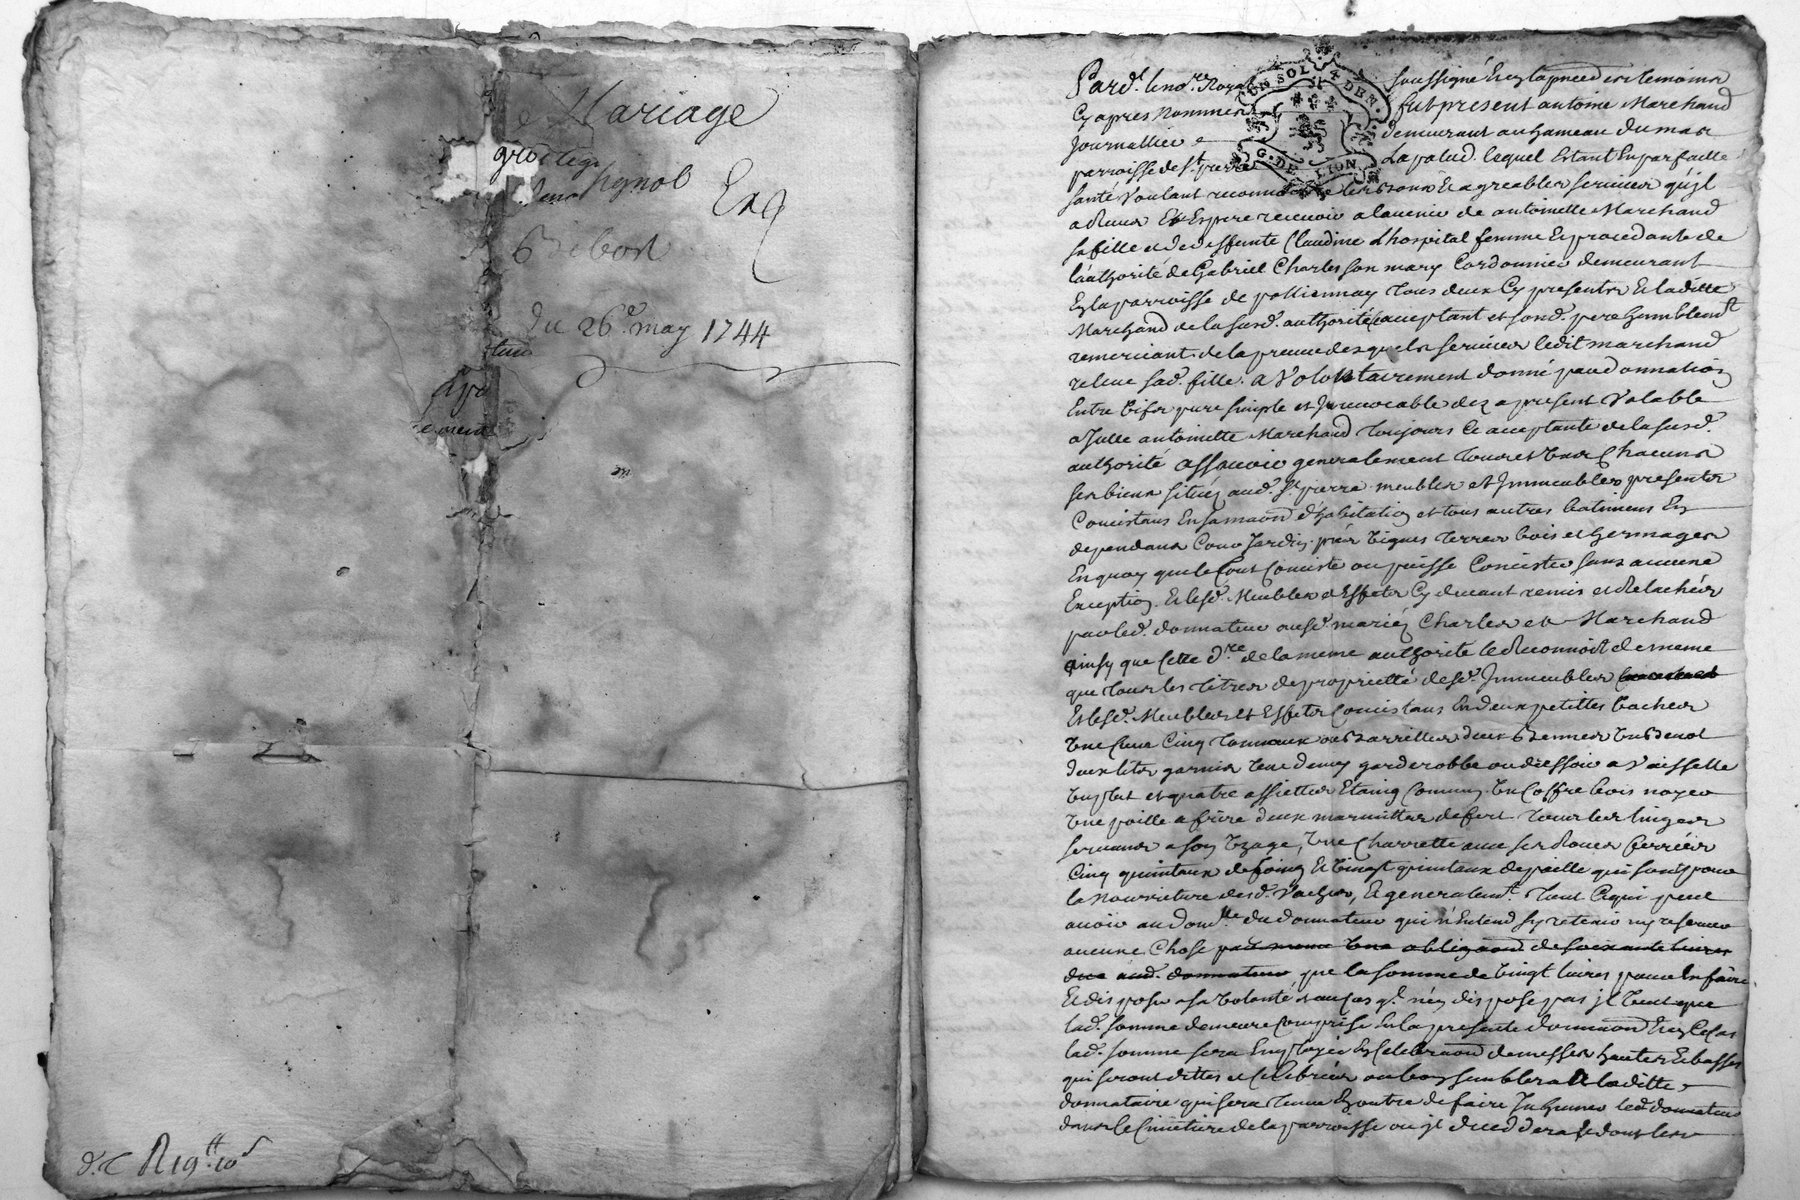 Mariage
grosteg
pignol
Exg
Debost
du 26e may 1744
d. C R 19tt 10s
UN SOL 4 DEN.
G. DE LION
Pard.t le no.re Royal soussigné En la pnce des temoins
Cy apres nommes fut present antoine Marchand
Journallier demeurant au hameau du mas
parroisse de St. pierre La palud. lequel Estant En parfaitte
santé Voulant reconnoitre les bons Et agreables services qu'jl
a Reçus Et Espere recevoir a lavenir de antoinette Marchand
sa fille et de deffunte Claudine Lhospital femme Et procedante de
lauthorité de Gabriel Charles son mary Cordonnier demeurant
En la parroisse de pollionnay tous deux Cy presents Et laditte
Marchand de la susd. authorité acceptant et sond. pere humblemt
remerciant. de la preuve desquels services ledit marchand
releve sad. fille. a Volontairement donné par donnation
Entre Vifs pure simple et Jrrevocable dez a present Valable
a Jcelle antoinette Marchand toujours Ce acceptante de la susd.
authorité assavoir generalement tous et Uns Chacuns
ses biens situéz aud. St. pierre meubles et Jmmeubles presents
Concistans En sa maison d'habitation et tous autres batimens En
dependans Cour Jardin, préz Vignes terres bois et hermages
En quoy que le tout Conciste ou puisse Concister sans aucune
Exception. Et lesd. Meubles et Effets Cy devant remis et Relachés
par led. donnateur ausd. mariéz Charles et Marchand
ainsy que Cette d.re de la meme authorité le Reconnoit de meme
que tous les titres de proprietté desd. Jmmeubles
Et lesd. Meubles et Effets Concistans En deux petittes Vaches
Une Cuve Cinq tonneaux ou Barrilles deux Bennes Un Benot
deux lits garnis Une demy garderobbe ou dressoir a Vaisselle
Un plat et quatre assiettes Etaing Commun, Un Coffre bois noyer
Une poille a frire deux marmittes de fert tous les linges
servans a son Usage, Une Charrette avec ses Roues ferréés
Cinq quintaux de foing Et Vingt quintaux de paille qui sont pour
la nourriture desd. Vaches, Et generalemt. tout Ce qui peut
avoir au dom.lle du donnateur qui n'Entend sy retenir ny reserver
aucune Chose pas meme Une obligaon de soixante livres
due aud. donnateur que la somme de Vingt livres pour En faire
Et disposer a sa Volonté et au Cas ql. n'en dispose pas jl Veut que
lad. somme demeure Comprise En la presente donnaon En Ce Cas
lad. somme sera Employée En Celebraon de messes hautes Et basses
qui seront dittes et Celebréés ou bon semblera a laditte
donnataire qui sera tenue En outre de faire Jnhumer led. donnateur
dans le Cimetiere de la parroisse ou jl deceddera Et dont les